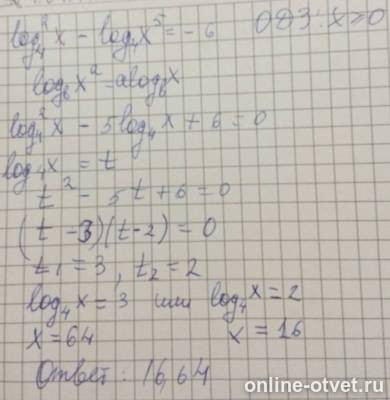 log₄²x - log₄x⁵ = -6 ОДЗ: x>0
log_b x^a = a log_b x
log₄²x - 5log₄x + 6 = 0
log₄x = t
t² - 5t + 6 = 0
(t - 3)(t - 2) = 0
t₁ = 3, t₂ = 2
log₄x = 3 или log₄x = 2
x = 64 x = 16
Ответ: 16, 64
online-otvet.ru